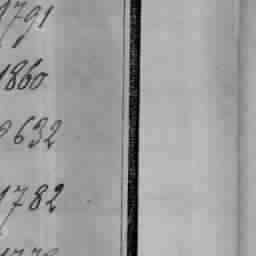 1791
1860
632
1782